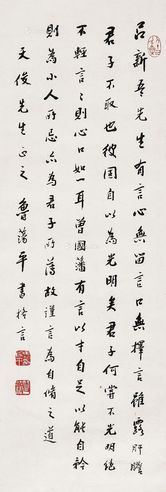 呂新吾先生有言心無留言口無擇言雖露肝膽
君子不取也彼固自以為光明矣君子何嘗不光明絕
不輕言言則心口如一耳曾國藩有言以才自足以能自矜
則為小人所忌亦為君子所薄故謹言為自脩之道
天俊先生正之 魯蕩平書格言